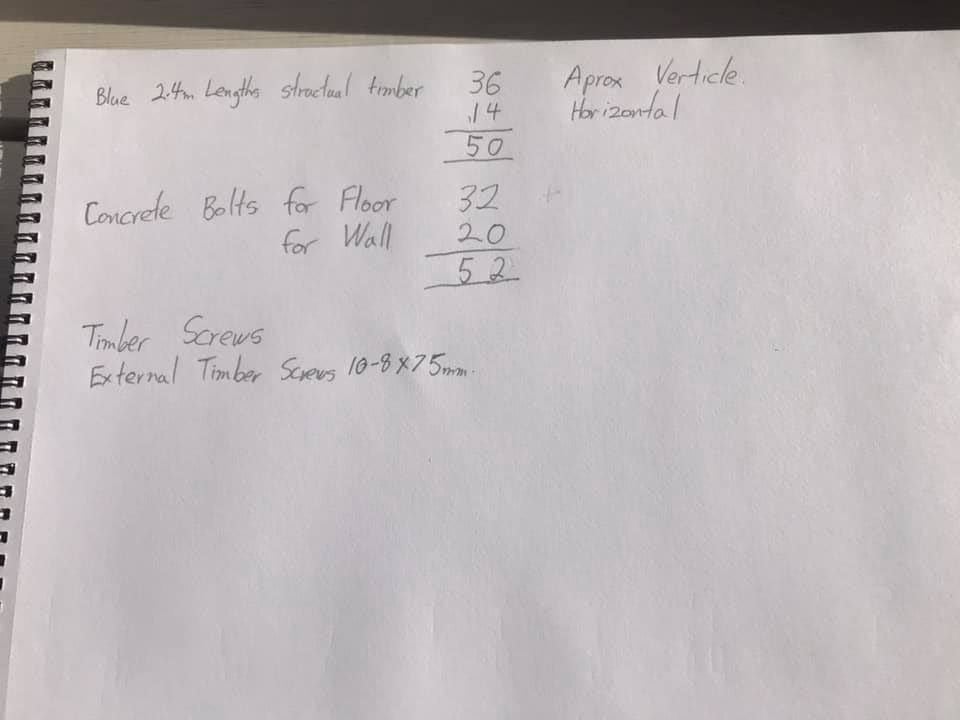 Blue 2.4m Lengths structual timber 36 Aprox Verticle.
14 Horizontal
50
Concrete Bolts for Floor 32
for Wall 20
52
Timber Screws
External Timber Screws 10-8x75mm.